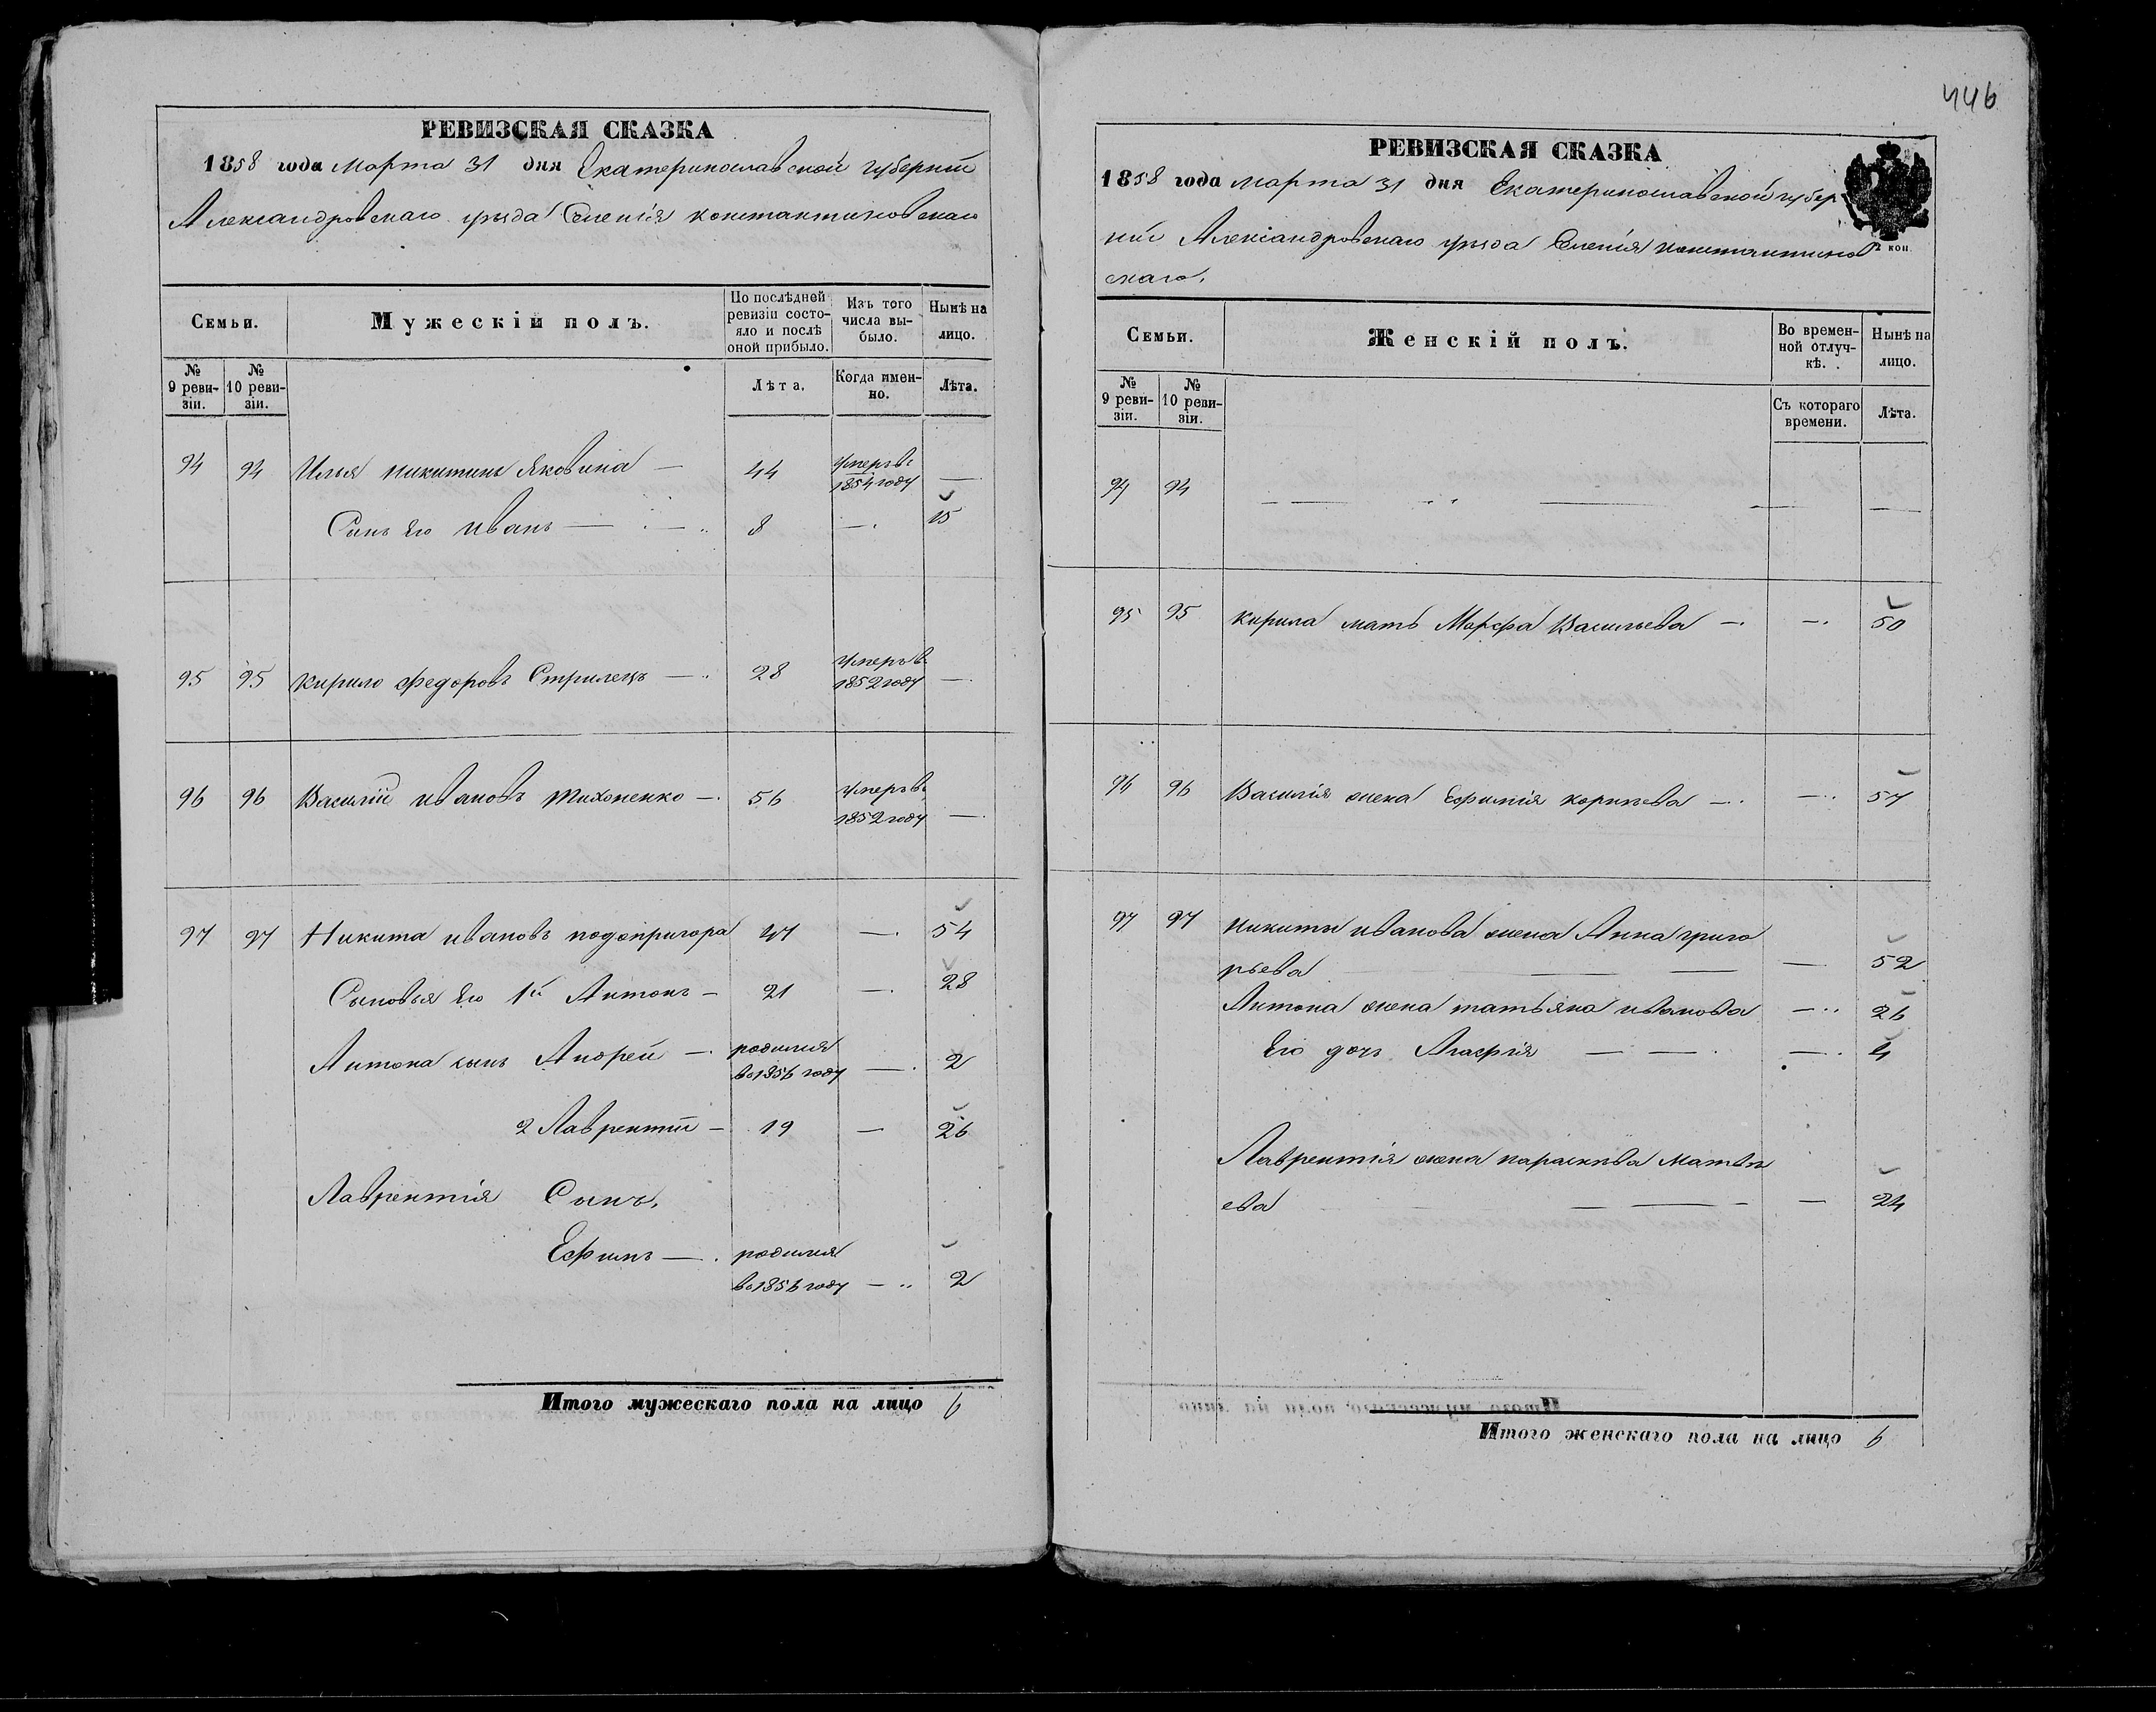 446
РЕВИЗСКАЯ СКАЗКА
1858 года Марта 31 дня Екатеринославской губерніи
Александровскаго уѣзда Селенія константиновскаго
Семьи.
Мужескій полъ.
По послѣдней ревизіи состояло и послѣ оной прибыло.
Изъ того числа выбыло.
Нынѣ на лицо.
№ 9 ревизіи.
№ 10 ревизіи.
Лѣта.
Когда именно.
Лѣта.
94 94 Илья никитинъ Яковина — 44 умеръ въ 1854 году —
Сынъ Его иванъ — 8 — 15
95 95 кирило федоровъ Стрилецъ — 28 умеръ въ 1852 году —
96 96 Василій ивановъ тихоненко — 56 умеръ въ 1852 году —
97 97 Никита ивановъ подопригора 47 — 54
Сыновья Его 1й Антонъ — 21 — 28
Антона сынъ Андрей — родился въ 1856 году — 2
2 Лаврентій — 19 — 26
Лаврентія Сынъ,
Ефимъ — родился въ 1856 году — 2
Итого мужескаго пола на лицо 6
РЕВИЗСКАЯ СКАЗКА
1858 года марта 31 дня Екатеринославской губер
ніи Александровскаго уѣзда Селенія константинов
скаго.
2 коп
Семьи.
Женскій полъ.
Во временной отлучкѣ.
Нынѣ на лицо.
№ 9 ревизіи.
№ 10 ревизіи.
Съ котораго времени.
Лѣта.
94 94 — — — —
95 95 кирила мать Марфа Васильева — — 50
96 96 Василія жена Ефимія — — 57
97 97 никиты иванова жена Анна григо
рьева — — — 52
Антона жена татьяна иванова — 26
Его дочь Агафія — — — 4
Лаврентія жена параскева матвѣ
ева — — — 24
Итого женскаго пола на лицо 6